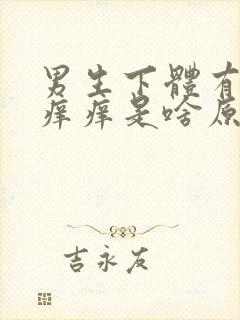 男生下體有
痒痒是啥原
吉永友